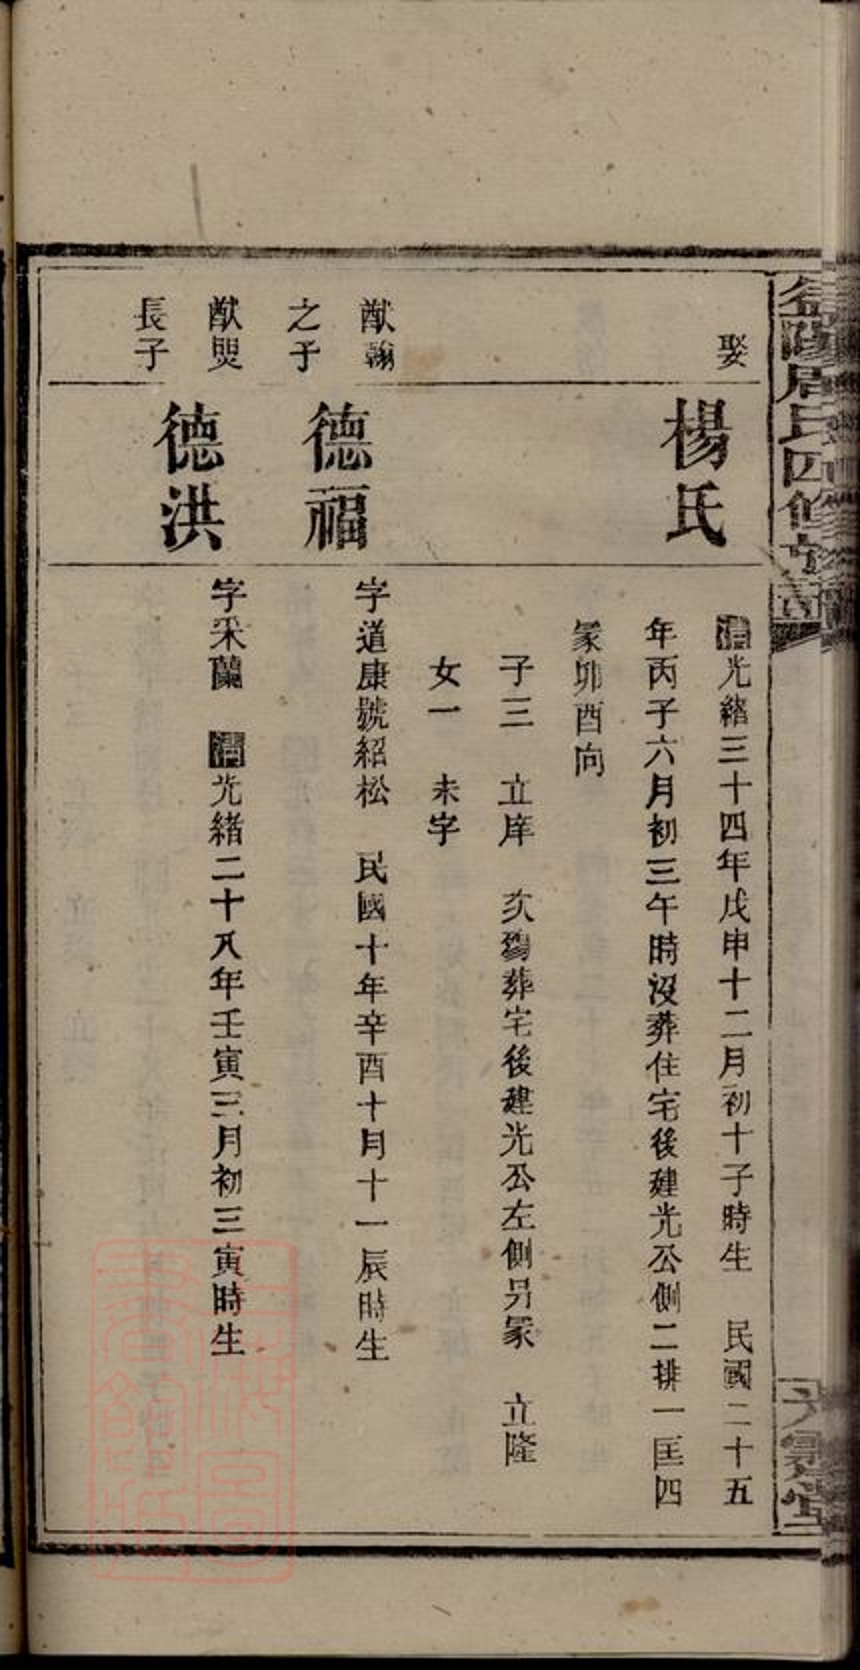 益陽周氏四修支譜
娶
楊氏
清光緒三十四年戊申十二月初十子時生 民國二十五
年丙子六月初三午時沒葬住宅後建光公側二排一匡四
冢卯酉向
子三 立庠 次殤葬宅後建光公左側另冢 立隆
女一 未字
猷翰
之子
德福
字道康號紹松 民國十年辛酉十月十一辰時生
猷煚
長子
德洪
字采蘭 清光緒二十八年壬寅三月初三寅時生
上海圖
書館藏